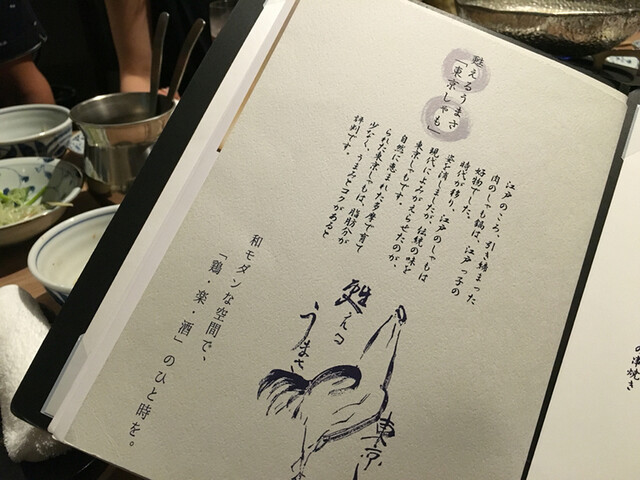 甦えるうまさ
「東京しゃも」
江戸のころ、引き締まった
肉のしゃも鍋は、江戸っ子の
好物でした。
時代が移り、江戸のしゃもは
姿を消しましたが、伝統の味を
現代によみがえらせたのが、
東京しゃもです。
自然に恵まれた多摩で育て
られた東京しゃもは、脂肪分が
少なく、うまみとコクがあると
評判です。
甦える
うまさ
東京
和モダンな空間で、
「鶏・楽・酒」のひと時を。
の串焼き